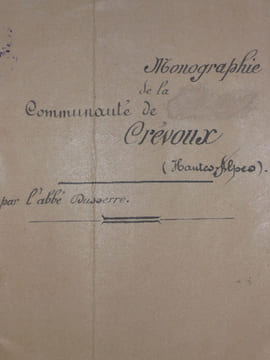 Monographie
de la
Communauté de
Crévoux
(Hautes-Alpes).
par l'abbé Dusserre.